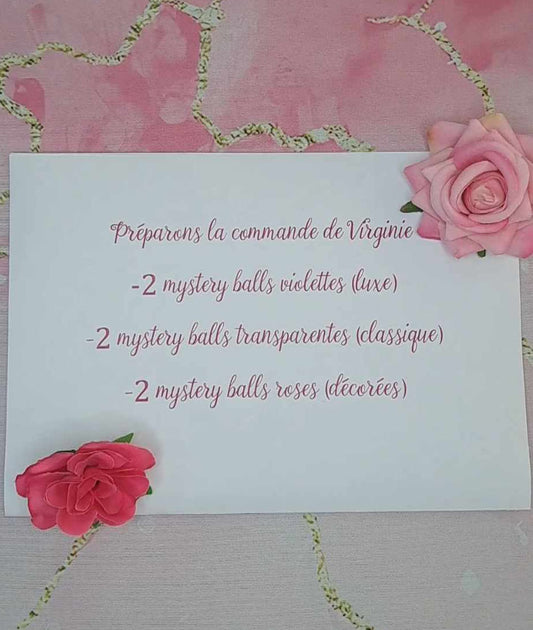 Préparons la commande de Virginie
-2 mystery balls violettes (luxe)
-2 mystery balls transparentes (classique)
-2 mystery balls roses (décorées)